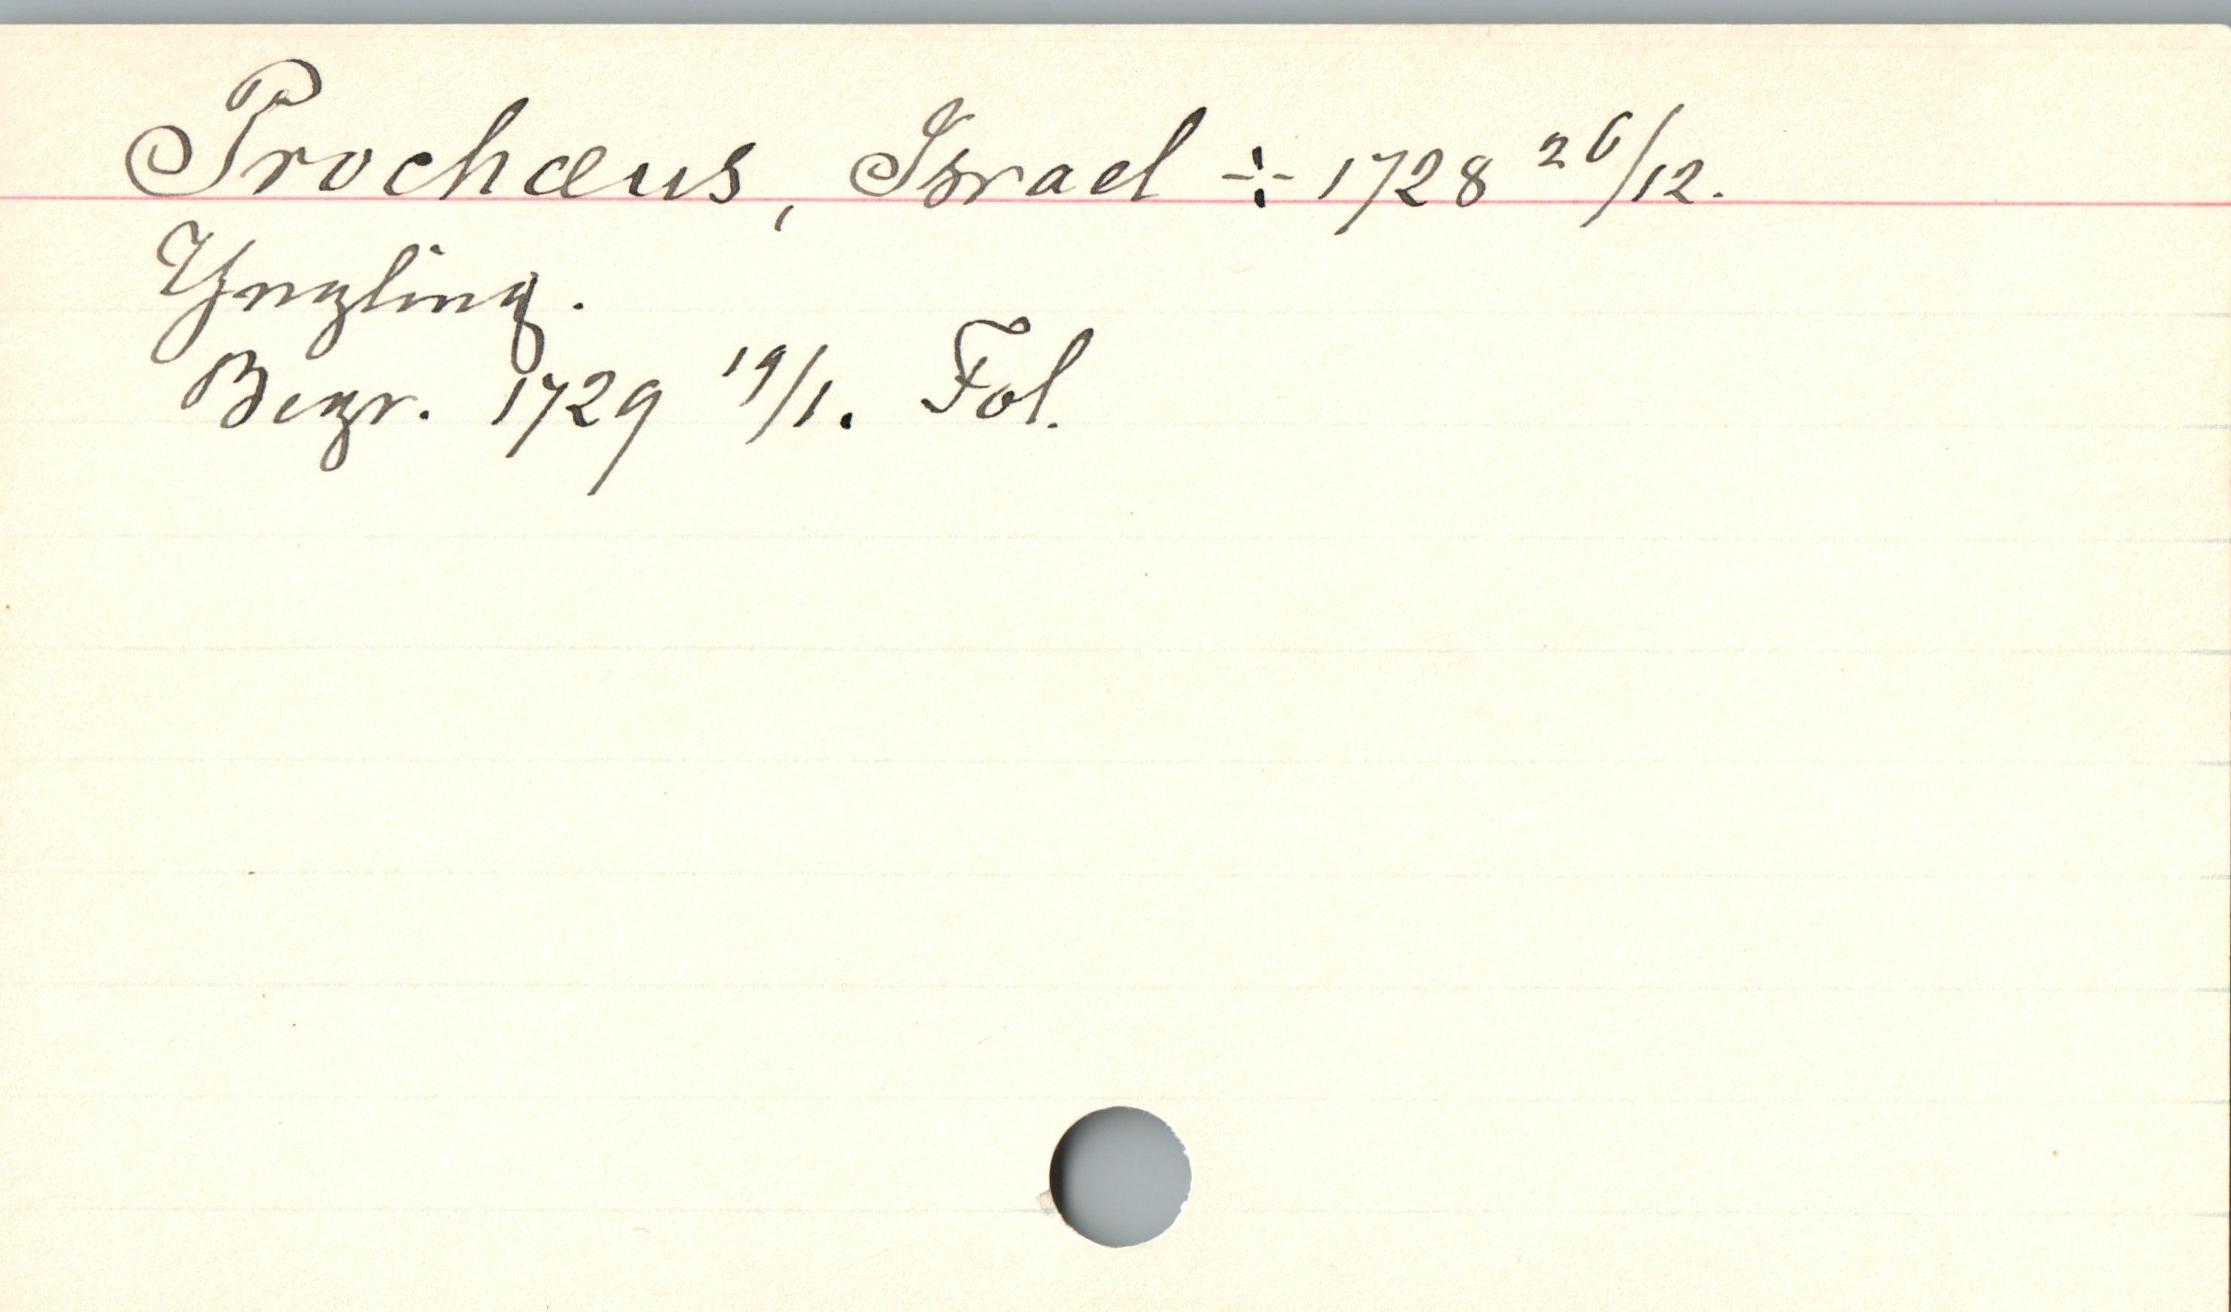 Prochæus, Israel ÷ 1728 26/12.
Yngling.
Begr. 1729 19/1. Fol.